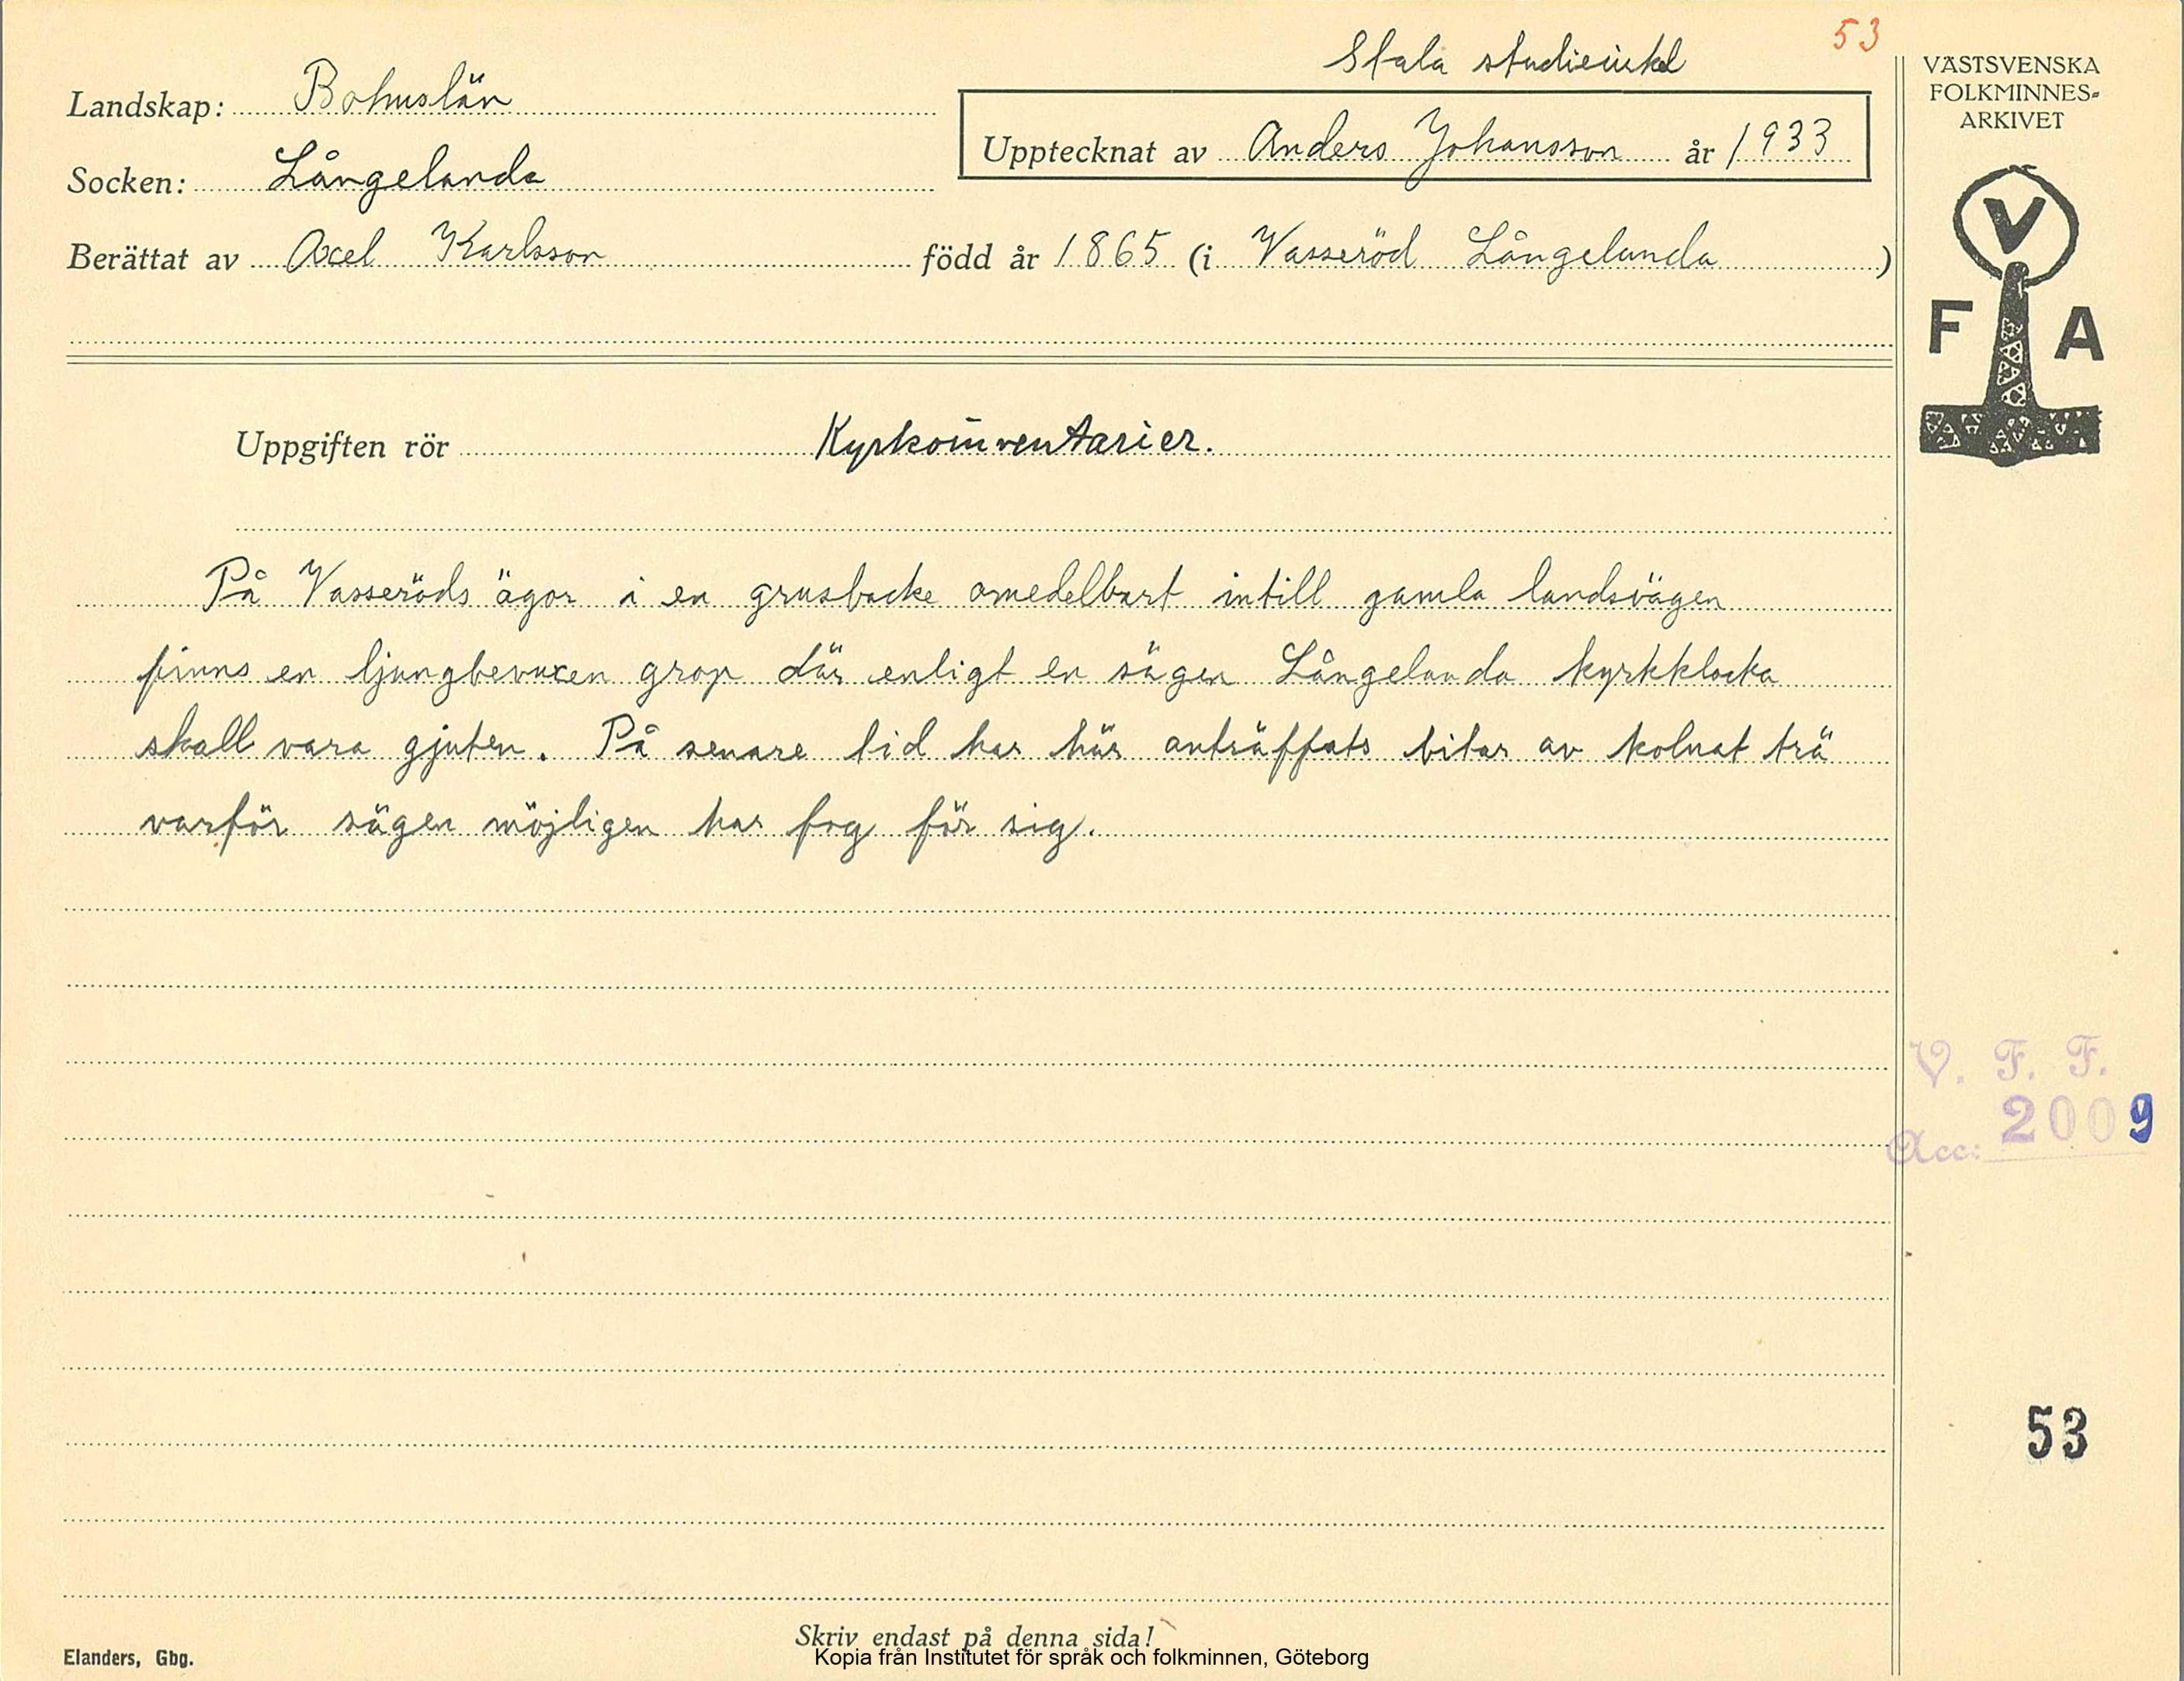 53
Stala studiecirkel
Landskap: Bohuslän
Upptecknat av Anders Johansson år 1933
Socken: Långelanda
Berättat av Axel Karlsson född år 1865 (i Vasseröd Långelanda )
Uppgiften rör Kyrkoinventarier.
På Vasseröds ägor i en grusbacke omedelbart intill gamla landsvägen
finns en ljungbevuxen grop där enligt en sägen Långelanda kyrkklocka
skall vara gjuten. På senare tid har här anträffats bitar av kolnat trä
varför sägen möjligen har fog för sig.
Skriv endast på denna sida!
Elanders, Gbg.
Kopia från Institutet för språk och folkminnen, Göteborg
VÄSTSVENSKA
FOLKMINNES-
ARKIVET
V
F A
V. F. F.
Acc: 2009
53